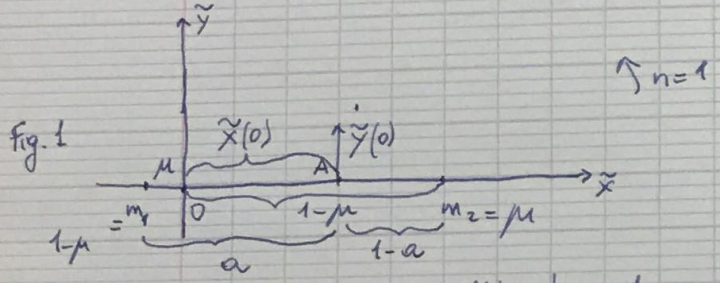 ỹ
n=1
Fig. 1
x̃(0)
ẏ̃(0)
μ
A
x̃
1-μ = m₁
O
1-μ
m₂ = μ
a
1-a